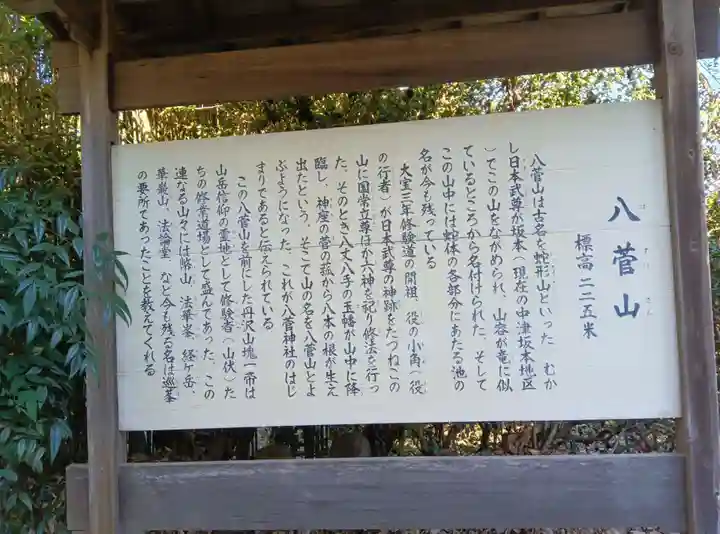 八菅山
はすげさん
標高 二二五米
八菅山は古名を蛇形山といった むか
し日本武尊が坂本(現在の中津坂本地区
)でこの山をながめられ、山容が竜に似
ているところから名付けられた。そして
この山中には蛇体の各部分にあたる池の
名が今も残っている
大宝三年修験道の開祖、役の小角(役
の行者)が日本武尊の神跡をたづねこの
山に国常立尊ほか六神を祀り修法を行っ
た。そのとき八丈八手の玉幡が山中に降
臨し、神座の菅の菰から八本の根が生え
出たという。そこで山の名を八菅山とよ
ぶようになった。これが八菅神社のはじ
まりであると伝えられている
この八菅山を前にした丹沢山塊一帯は
山岳信仰の霊地として修験者(山伏)た
ちの修業道場として盛んであった。この
連なる山々には幣山、法華峯、経ヶ岳、
華厳山、法論堂、など今も残る名は巡峯
の要所であったことを教えてくれる